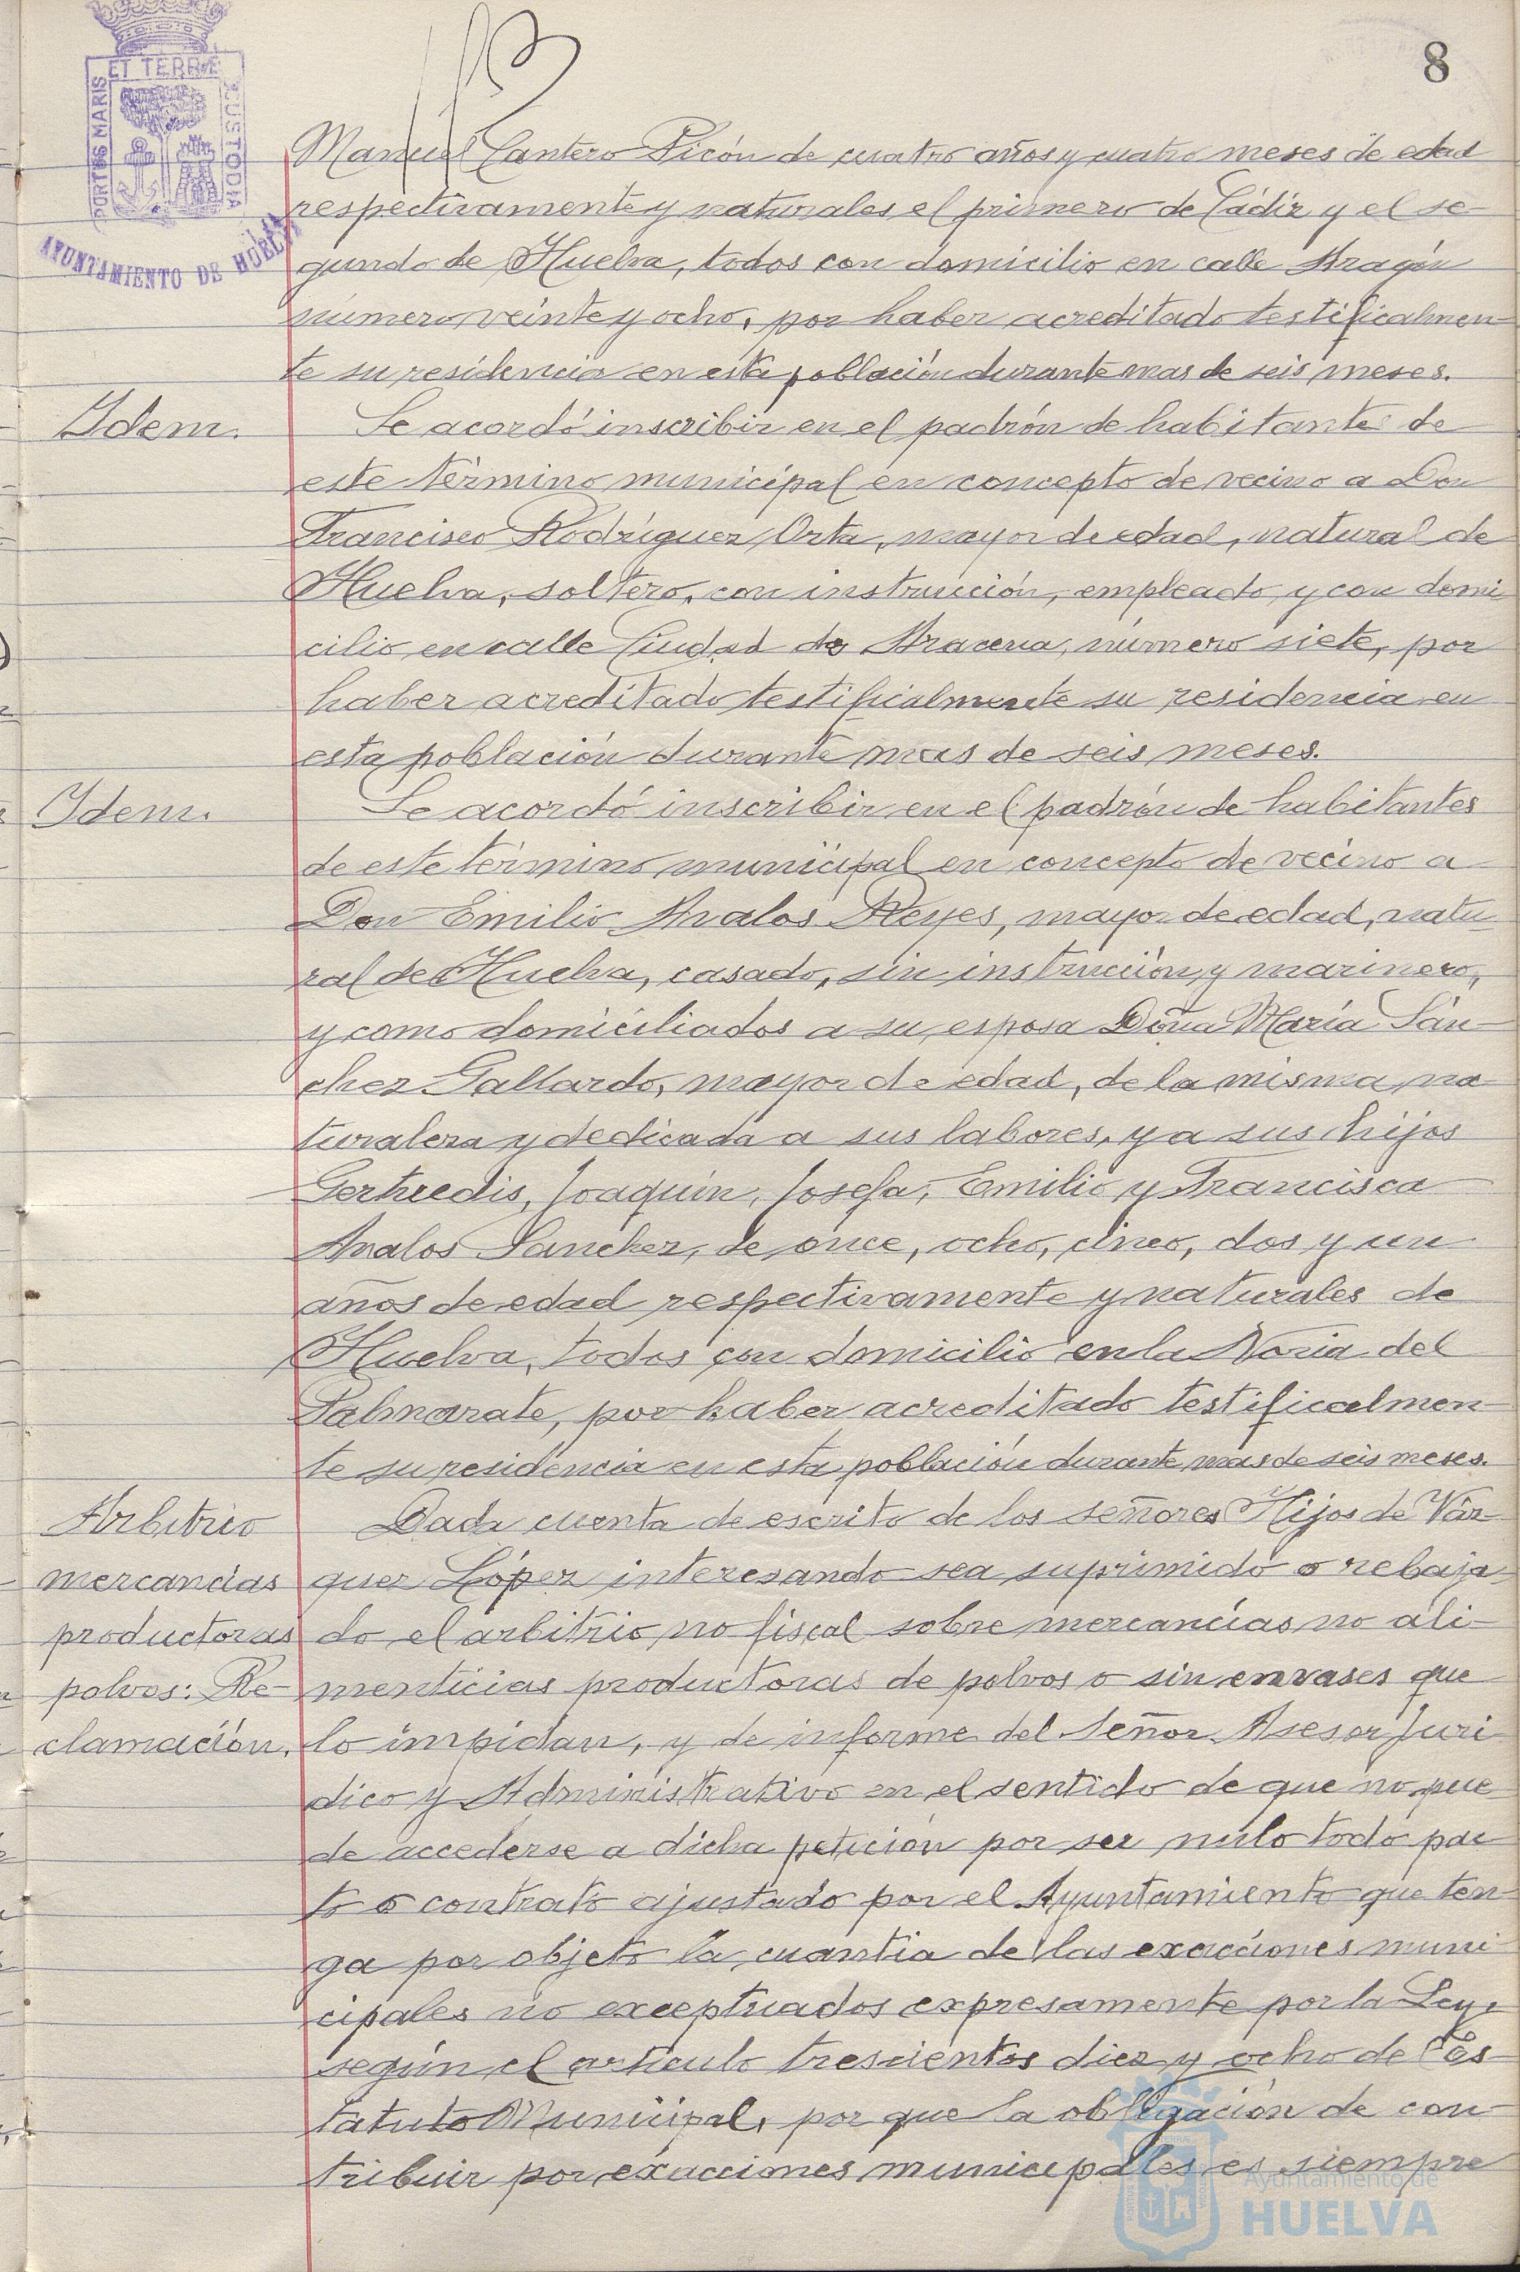 8
PORTUS MARIS ET TERRE CUSTODIA
AYUNTAMIENTO DE HUELVA
Manuel Cantero Picón de cuatro años y cuatro meses de edad
respectivamente y naturales el primero de Cádiz y el se-
gundo de Huelva, todos con domicilio en calle Aragón
número veinte y ocho, por haber acreditado testificalmen-
te su residencia en esta población durante mas de seis meses.
Idem.
Se acordó inscribir en el padrón de habitantes de
este término municipal en concepto de vecino a Don
Francisco Rodríguez Orta, mayor de edad, natural de
Huelva, soltero, con instrucción, empleado, y con domi-
cilio en calle Ciudad de Aracena, número siete, por
haber acreditado testificalmente su residencia en
esta población durante mas de seis meses.
Idem.
Se acordó inscribir en el padrón de habitantes
de este término municipal en concepto de vecino a
Don Emilio Avalos Reyes, mayor de edad, natu-
ral de Huelva, casado, sin instrucción y marinero,
y como domiciliados a su esposa Doña María Sán-
chez Gallardo, mayor de edad, de la misma na-
turaleza y dedicada a sus labores, y a sus hijos
Gertrudis, Joaquín, Josefa, Emilio y Francisca
Avalos Sanchez, de once, ocho, cinco, dos y un
años de edad respectivamente y naturales de
Huelva, todos con domicilio en la Noria del
Palmarate, por haber acreditado testificalmen-
te su residencia en esta población durante mas de seis meses.
Arbitrio
mercancias
productoras
polvos: Re-
clamación.
Dada cuenta de escrito de los señores Hijos de Váz-
quez López interesando sea suprimido o rebaja-
do el arbitrio no fiscal sobre mercancías no ali-
menticias productoras de polvos o sin envases que
lo impidan, y de informe del Señor Asesor Juri-
dico y Administrativo en el sentido de que no pue-
de accederse a dicha petición por ser nulo todo pac-
to o contrato ajustado por el Ayuntamiento que ten-
ga por objeto la cuantia de las exacciones muni-
cipales no exceptuados expresamente por la Ley,
según el artículo trescientos diez y ocho de Es-
tatuto Municipal, por que la obligación de con-
tribuir por exacciones municipales es siempre
Ayuntamiento de
HUELVA